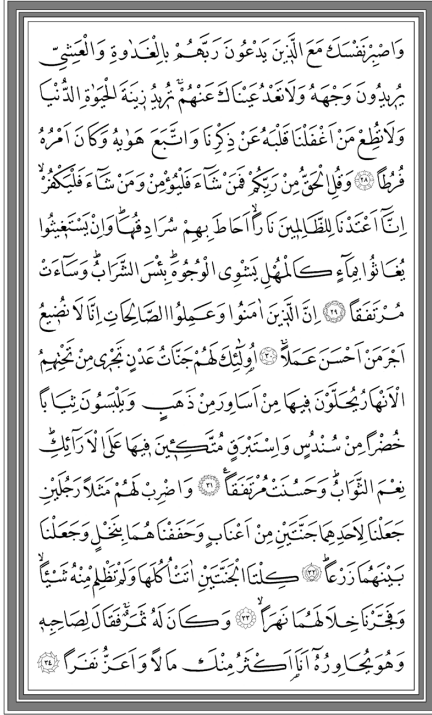 وَاصْبِرْ نَفْسَكَ مَعَ الَّذٖينَ يَدْعُونَ رَبَّهُمْ بِالْغَدٰوةِ وَالْعَشِيِّ
يُرٖيدُونَ وَجْهَهُ وَلَا تَعْدُ عَيْنَاكَ عَنْهُمْۚ تُرٖيدُ زٖينَةَ الْحَيٰوةِ الدُّنْيَا
وَلَا تُطِعْ مَنْ اَغْفَلْنَا قَلْبَهُ عَنْ ذِكْرِنَا وَاتَّبَعَ هَوٰيهُ وَكَانَ اَمْرُهُ
فُرُطًا ﴿٢٨﴾ وَقُلِ الْحَقُّ مِنْ رَبِّكُمْ فَمَنْ شَٓاءَ فَلْيُؤْمِنْ وَمَنْ شَٓاءَ فَلْيَكْفُرْۙ
اِنَّٓا اَعْتَدْنَا لِلظَّالِمٖينَ نَارًاۙ اَحَاطَ بِهِمْ سُرَادِقُهَاۜ وَاِنْ يَسْتَغٖيثُوا
يُغَاثُوا بِمَٓاءٍ كَالْمُهْلِ يَشْوِي الْوُجُوهَۜ بِئْسَ الشَّرَابُۜ وَسَٓاءَتْ
مُرْتَفَقًا ﴿٢٩﴾ اِنَّ الَّذٖينَ اٰمَنُوا وَعَمِلُوا الصَّالِحَاتِ اِنَّا لَا نُضٖيعُ
اَجْرَ مَنْ اَحْسَنَ عَمَلًاۚ ﴿٣٠﴾ اُو۬لٰٓئِكَ لَهُمْ جَنَّاتُ عَدْنٍ تَجْرٖي مِنْ تَحْتِهِمُ
الْاَنْهَارُ يُحَلَّوْنَ فٖيهَا مِنْ اَسَاوِرَ مِنْ ذَهَبٍ وَيَلْبَسُونَ ثِيَابًا
خُضْرًا مِنْ سُنْدُسٍ وَاِسْتَبْرَقٍ مُتَّكِـٖٔينَ فٖيهَا عَلَى الْاَرَٓائِكِۜ
نِعْمَ الثَّوَابُۜ وَحَسُنَتْ مُرْتَفَقًا۟ ﴿٣١﴾ وَاضْرِبْ لَهُمْ مَثَلًا رَجُلَيْنِ
جَعَلْنَا لِاَحَدِهِمَا جَنَّتَيْنِ مِنْ اَعْنَابٍ وَحَفَفْنَاهُمَا بِنَخْلٍ وَجَعَلْنَا
بَيْنَهُمَا زَرْعًاۜ ﴿٣٢﴾ كِلْتَا الْجَنَّتَيْنِ اٰتَتْ اُكُلَهَا وَلَمْ تَظْلِمْ مِنْهُ شَيْـًٔاۙ
وَفَجَّرْنَا خِلَالَهُمَا نَهَرًاۙ ﴿٣٣﴾ وَكَانَ لَهُ ثَمَرٌۚ فَقَالَ لِصَاحِبِهٖ
وَهُوَ يُحَاوِرُهُٓ اَنَا۬ اَكْثَرُ مِنْكَ مَالًا وَاَعَزُّ نَفَرًا ﴿٣٤﴾